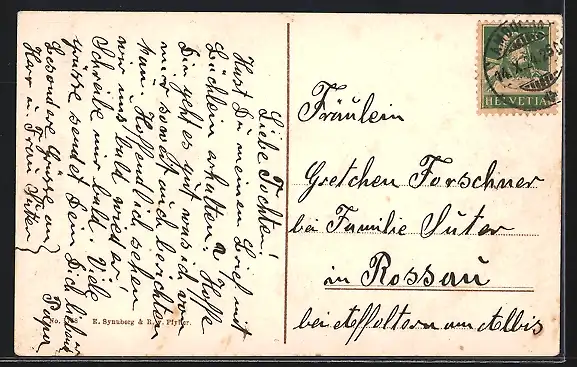 Liebe Tochter!
Hast Du meinen Brief mit
Büchlein erhalten? Hoffe
Dir geht es gut was ich von
mir soweit auch berichten
kann. Hoffendlich sehen
wir uns bald wieder!
Schreibe mir bald. Viele
Grüsse sendet Dein Dich liebender
Papa
Besondere Grüsse an
Herr u. Frau Suter
Fräulein
Gretchen Forschner
bei Familie Suter
in Rossau
bei Affoltern am Albis
HELVETIA
E. Synnberg & R. v. Pfyffer.